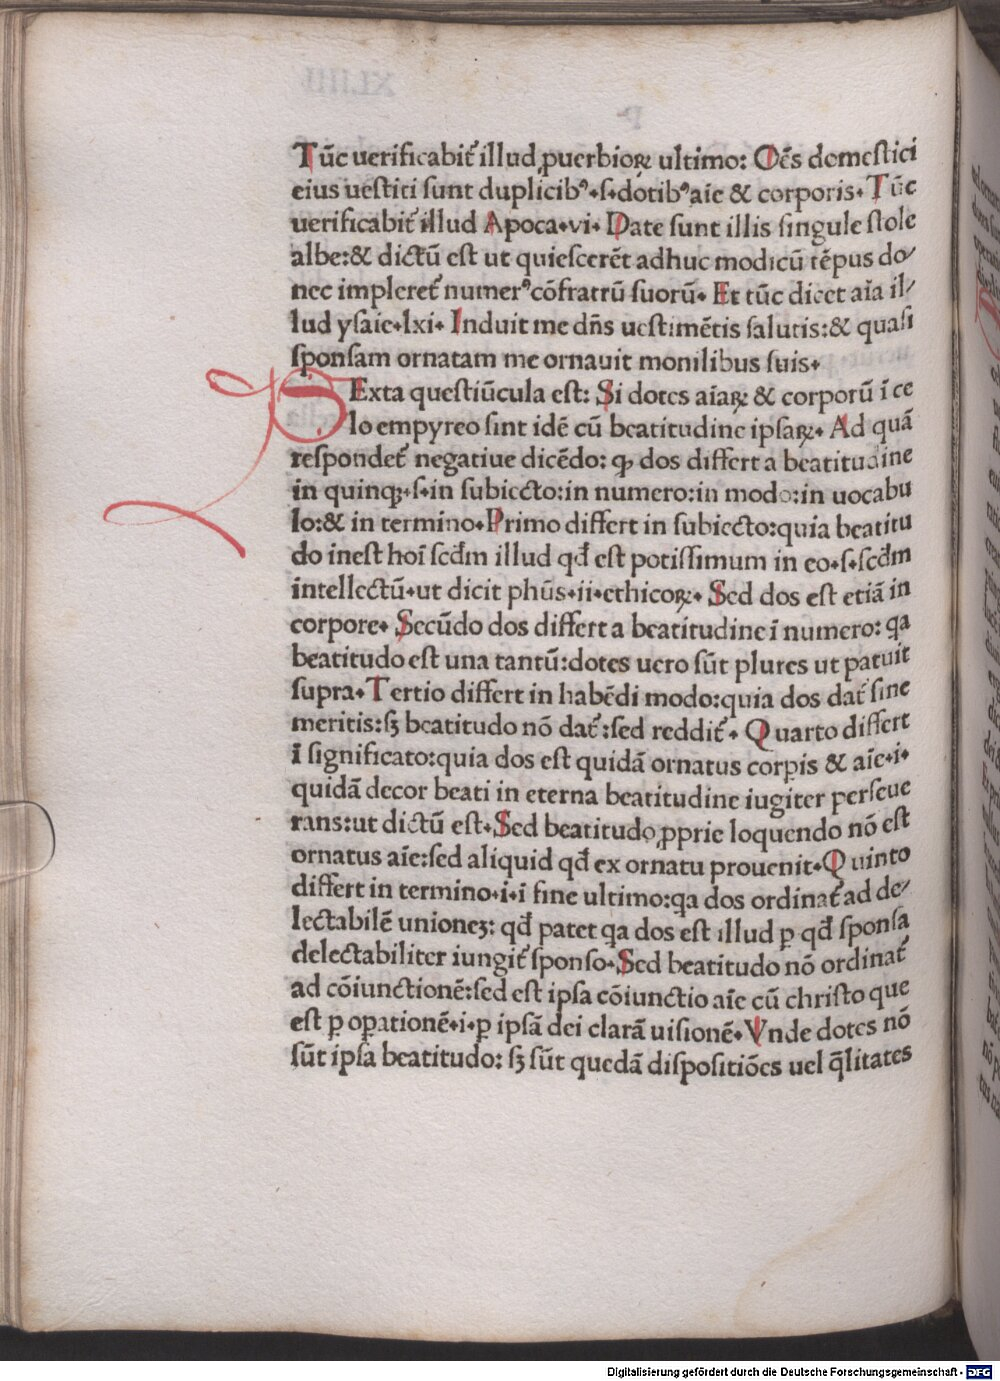 Tūc uerificabit᷑ illud ꝓuerbioꝝ ultimo: Oēs domestici
eius uestiti sunt duplicibꝰ·s·dotibꝰ aīe & corporis· Tūc
uerificabit᷑ illud Apoca·vi· Date sunt illis singule stole
albe:& dictū est ut quiescerēt adhuc modicū tēpus do/
nec impleret᷑ numerꝰ cōfratrū suorū· Et tūc dicet aīa il/
lud ysaie·lxi· Induit me dn̄s uestimētis salutis:& quasi
sponsam ornatam me ornauit monilibus suis·
SExta questiūcula est: Si dotes aīaꝝ & corporū ī ce
lo empyreo sint idē cū beatitudine ipsaꝝ· Ad quā
respondet᷑ negatiue dicēdo: ꝙ dos differt a beatitudine
in quinqꝫ·s·in subiecto:in numero:in modo:in uocabu
lo:& in termino· Primo differt in subiecto:quia beatitu
do inest hoī scđm illud qđ est potissimum in eo·s·scđm
intellectū·ut dicit phūs·ii·ethicoꝝ· Sed dos est etiā in
corpore· Secūdo dos differt a beatitudine ī numero: qa
beatitudo est una tantū:dotes uero sūt plures ut patuit
supra· Tertio differt in habēdi modo:quia dos dat᷑ sine
meritis:sꝫ beatitudo nō dat᷑:sed reddit᷑· Quarto differt
ī significato:quia dos est quidā ornatus corꝑis & aīe·i·
quidā decor beati in eterna beatitudine iugiter perseue
rans:ut dictū est· Sed beatitudo ꝓprie loquendo nō est
ornatus aīe:sed aliquid qđ ex ornatu prouenit· Quinto
differt in termino·i·ī fine ultimo:qa dos ordinat᷑ ad de/
lectabilē unioneꝫ: qđ patet qa dos est illud ꝑ qđ sponsa
delectabiliter iungit᷑ sponso· Sed beatitudo nō ordinat᷑
ad cōiunctionē:sed est ipsa cōiunctio aīe cū christo que
est ꝑ oꝑationē·i·ꝑ ipsā dei clarā uisionē· Vnde dotes nō
sūt ipsa beatitudo: sꝫ sūt quedā dispositiōes uel q̄litates
Digitalisierung gefördert durch die Deutsche Forschungsgemeinschaft - DFG